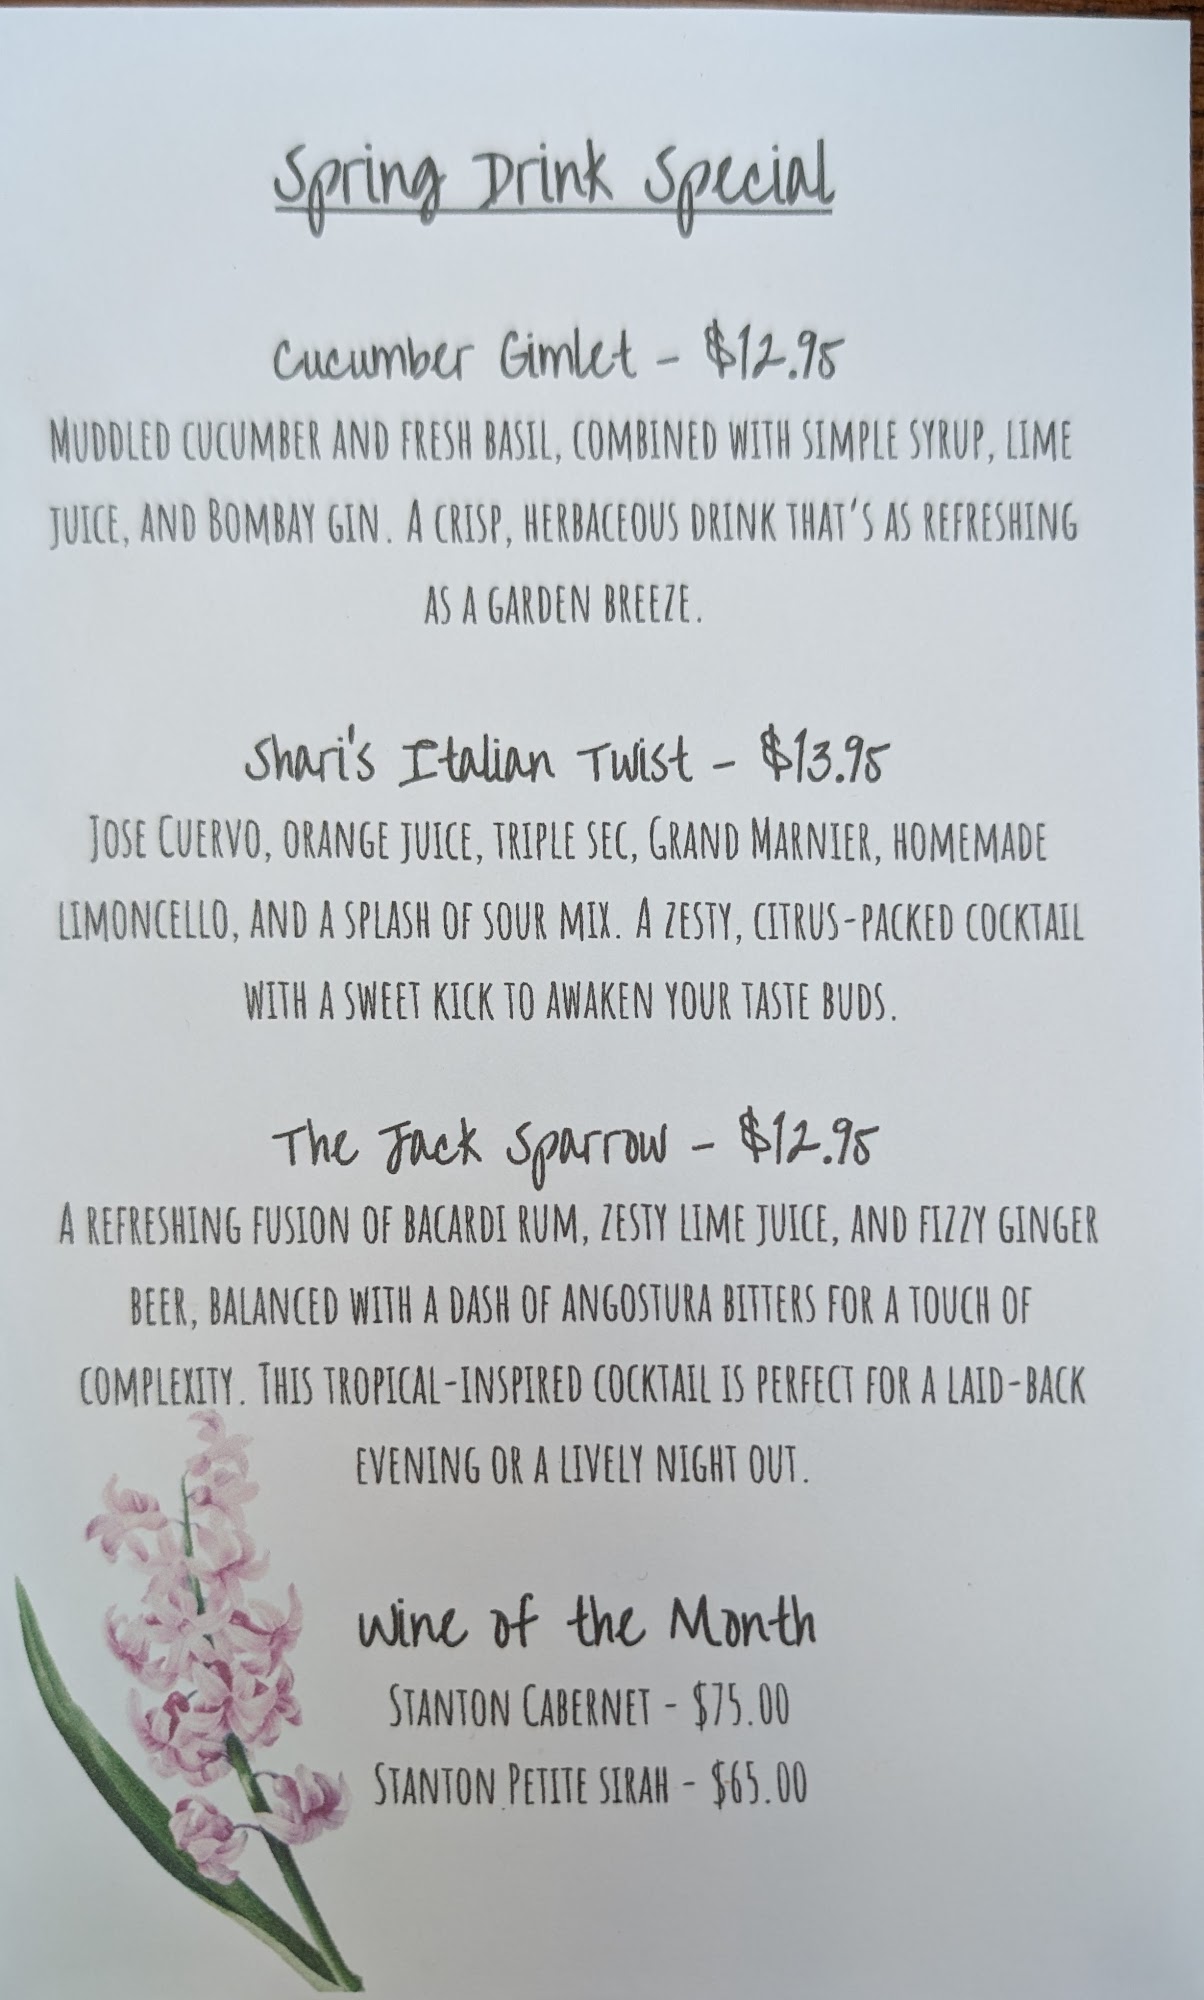 Spring Drink Special
Cucumber Gimlet - $12.95
Muddled cucumber and fresh basil, combined with simple syrup, lime
juice, and Bombay gin. A crisp, herbaceous drink that's as refreshing
as a garden breeze.
Shari's Italian Twist - $13.95
Jose Cuervo, orange juice, triple sec, Grand Marnier, homemade
limoncello, and a splash of sour mix. A zesty, citrus-packed cocktail
with a sweet kick to awaken your taste buds.
The Jack Sparrow - $12.95
A refreshing fusion of Bacardi rum, zesty lime juice, and fizzy ginger
beer, balanced with a dash of angostura bitters for a touch of
complexity. This tropical-inspired cocktail is perfect for a laid-back
evening or a lively night out.
Wine of the Month
Stanton Cabernet - $75.00
Stanton Petite sirah - $65.00